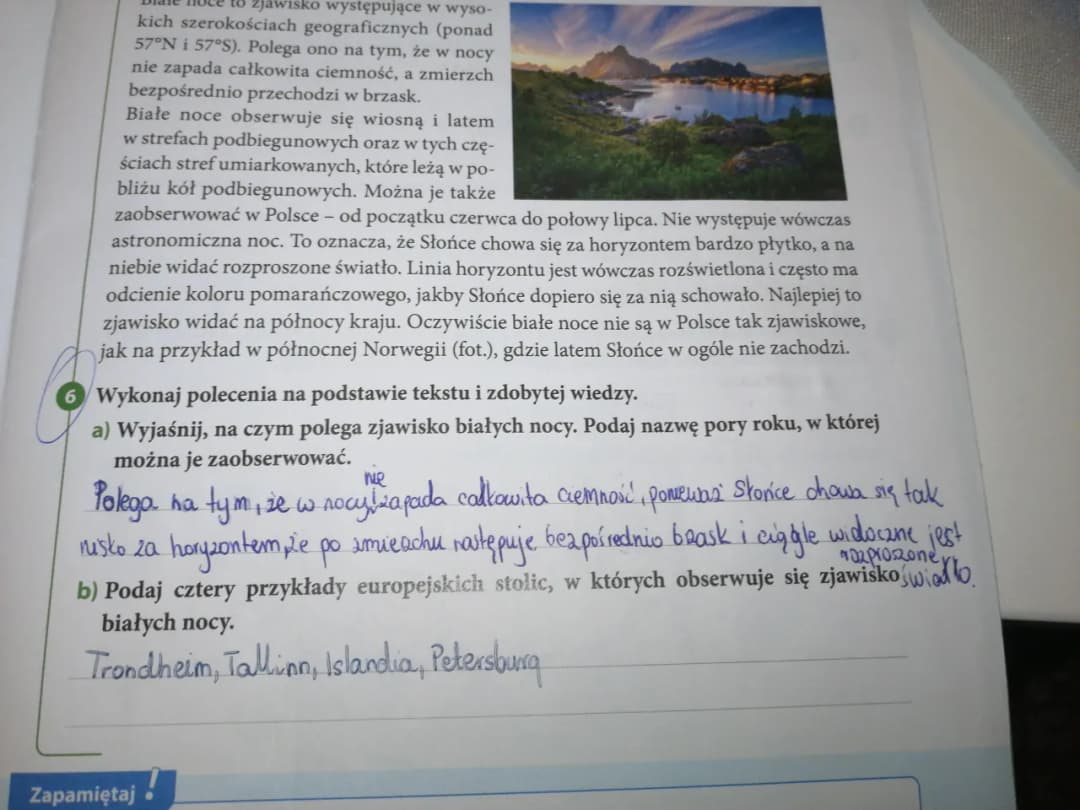 Białe noce to zjawisko występujące w wyso-
kich szerokościach geograficznych (ponad
57°N i 57°S). Polega ono na tym, że w nocy
nie zapada całkowita ciemność, a zmierzch
bezpośrednio przechodzi w brzask.
Białe noce obserwuje się wiosną i latem
w strefach podbiegunowych oraz w tych czę-
ściach stref umiarkowanych, które leżą w po-
bliżu kół podbiegunowych. Można je także
zaobserwować w Polsce – od początku czerwca do połowy lipca. Nie występuje wówczas
astronomiczna noc. To oznacza, że Słońce chowa się za horyzontem bardzo płytko, a na
niebie widać rozproszone światło. Linia horyzontu jest wówczas rozświetlona i często ma
odcienie koloru pomarańczowego, jakby Słońce dopiero się za nią schowało. Najlepiej to
zjawisko widać na północy kraju. Oczywiście białe noce nie są w Polsce tak zjawiskowe,
jak na przykład w północnej Norwegii (fot.), gdzie latem Słońce w ogóle nie zachodzi.
6 Wykonaj polecenia na podstawie tekstu i zdobytej wiedzy.
a) Wyjaśnij, na czym polega zjawisko białych nocy. Podaj nazwę pory roku, w której
można je zaobserwować.
nie
Polega na tym, że w nocy zapada całkowita ciemność, ponieważ Słońce chowa się tak
nisko za horyzontem, że po zmierzchu następuje bezpośrednio brzask i ciągle widoczne jest
rozproszone
światło.
b) Podaj cztery przykłady europejskich stolic, w których obserwuje się zjawisko
białych nocy.
Trondheim, Tallinn, Islandia, Petersburg
Zapamiętaj!